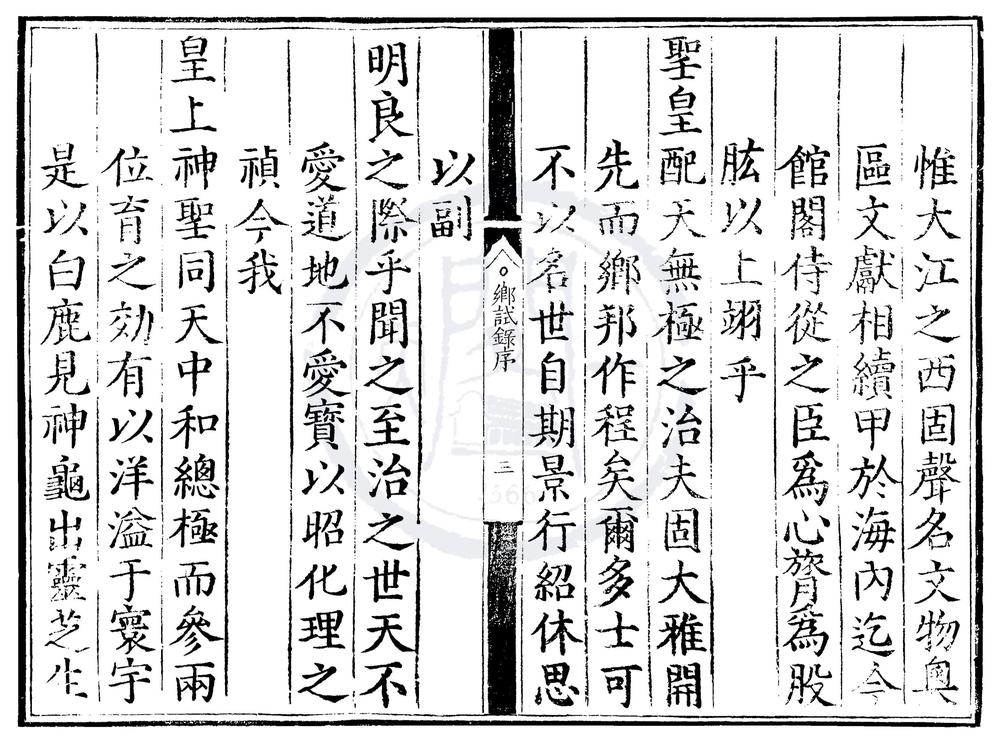 惟大江之西固聲名文物奧
區文獻相續甲於海內迄今
館閣侍從之臣爲心膂爲股
肱以上翊乎
聖皇配天無極之治夫固大雅開
先而鄉邦作程矣爾多士可
不以名世自期景行紹休思
鄉試錄序
三
以副
明良之際乎聞之至治之世天不
愛道地不愛寶以昭化理之
禎今我
皇上神聖同天中和總極而參兩
位育之効有以洋溢于寰宇
是以白鹿見神龜出靈芝生